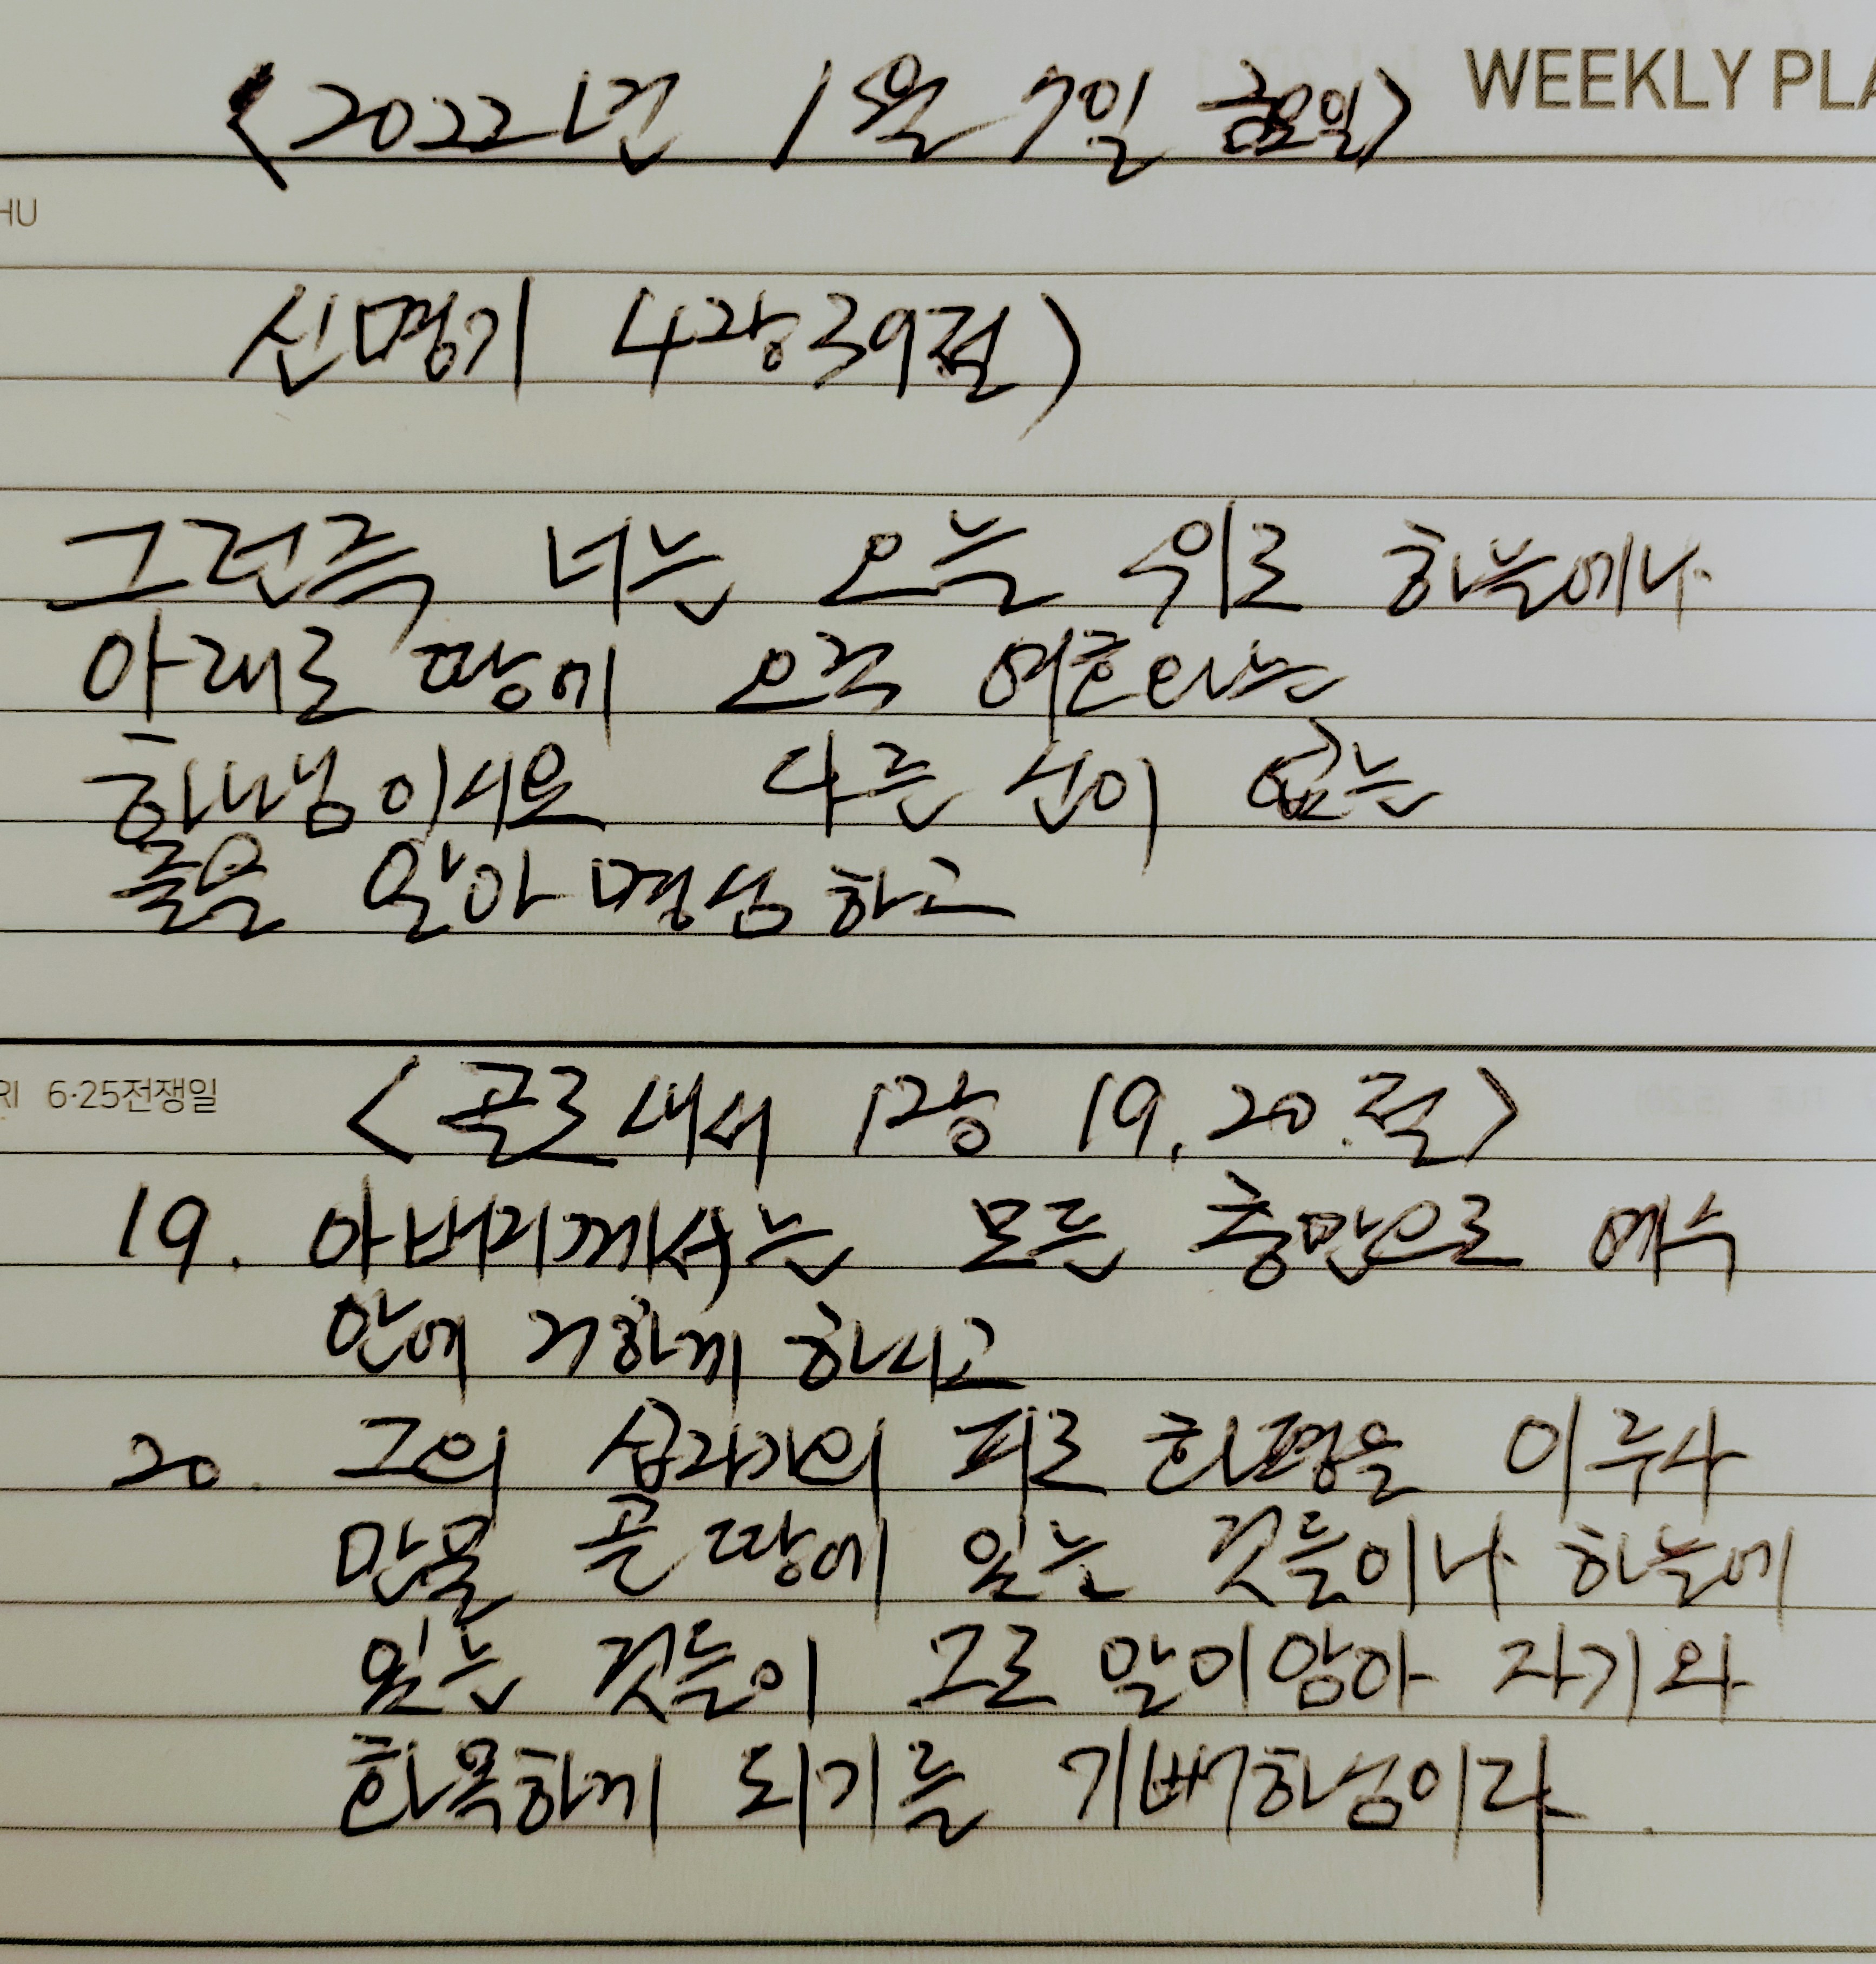 <2022년 1월 7일 금요일> WEEKLY PLA
HU
신명기 4장39절)
그런즉 너는 오늘 위로 하늘에나
아래로 땅에 오직 여호와는
하나님이시요 다른 신이 없는
줄을 알아 명심하고
RI 6·25전쟁일 <골로새서 1장 19, 20.절>
19. 아버지께서는 모든 충만으로 예수
안에 거하게 하시고
20. 그의 십자가의 피로 화평을 이루사
만물 곧 땅에 있는 것들이나 하늘에
있는 것들이 그로 말미암아 자기와
화목하게 되기를 기뻐하심이라.